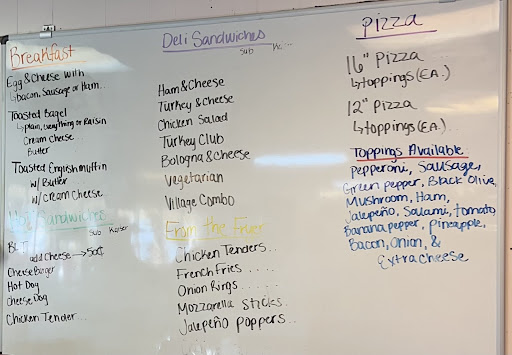 Breakfast
Egg & Cheese with
↳bacon, Sausage or Ham...
Toasted Bagel
↳plain, everything or Raisin
Cream Cheese...
Butter
Toasted English muffin
w/ Butter
w/ cream Cheese
Hot Sandwiches
Sub Kaiser
BLT
add cheese → 50¢
Cheese Burger
Hot Dog
Cheese Dog
Chicken Tender...
Deli Sandwiches
Sub
Ham & Cheese
Turkey & Cheese
Chicken Salad
Turkey Club
Bologna & cheese
Vegetarian
Village Combo
From the Fryer
Chicken Tenders..
French Fries.....
Onion Rings.....
Mozzarella Sticks.
Jalapeño poppers...
Pizza
16" Pizza
↳toppings (EA.)
12" Pizza
↳toppings (EA.)
Toppings Available
Pepperoni, Sausage,
Green pepper, Black Olive,
Mushroom, Ham,
Jalapeño, Salami, tomato,
Banana pepper, pineapple,
Bacon, onion, &
Extra cheese